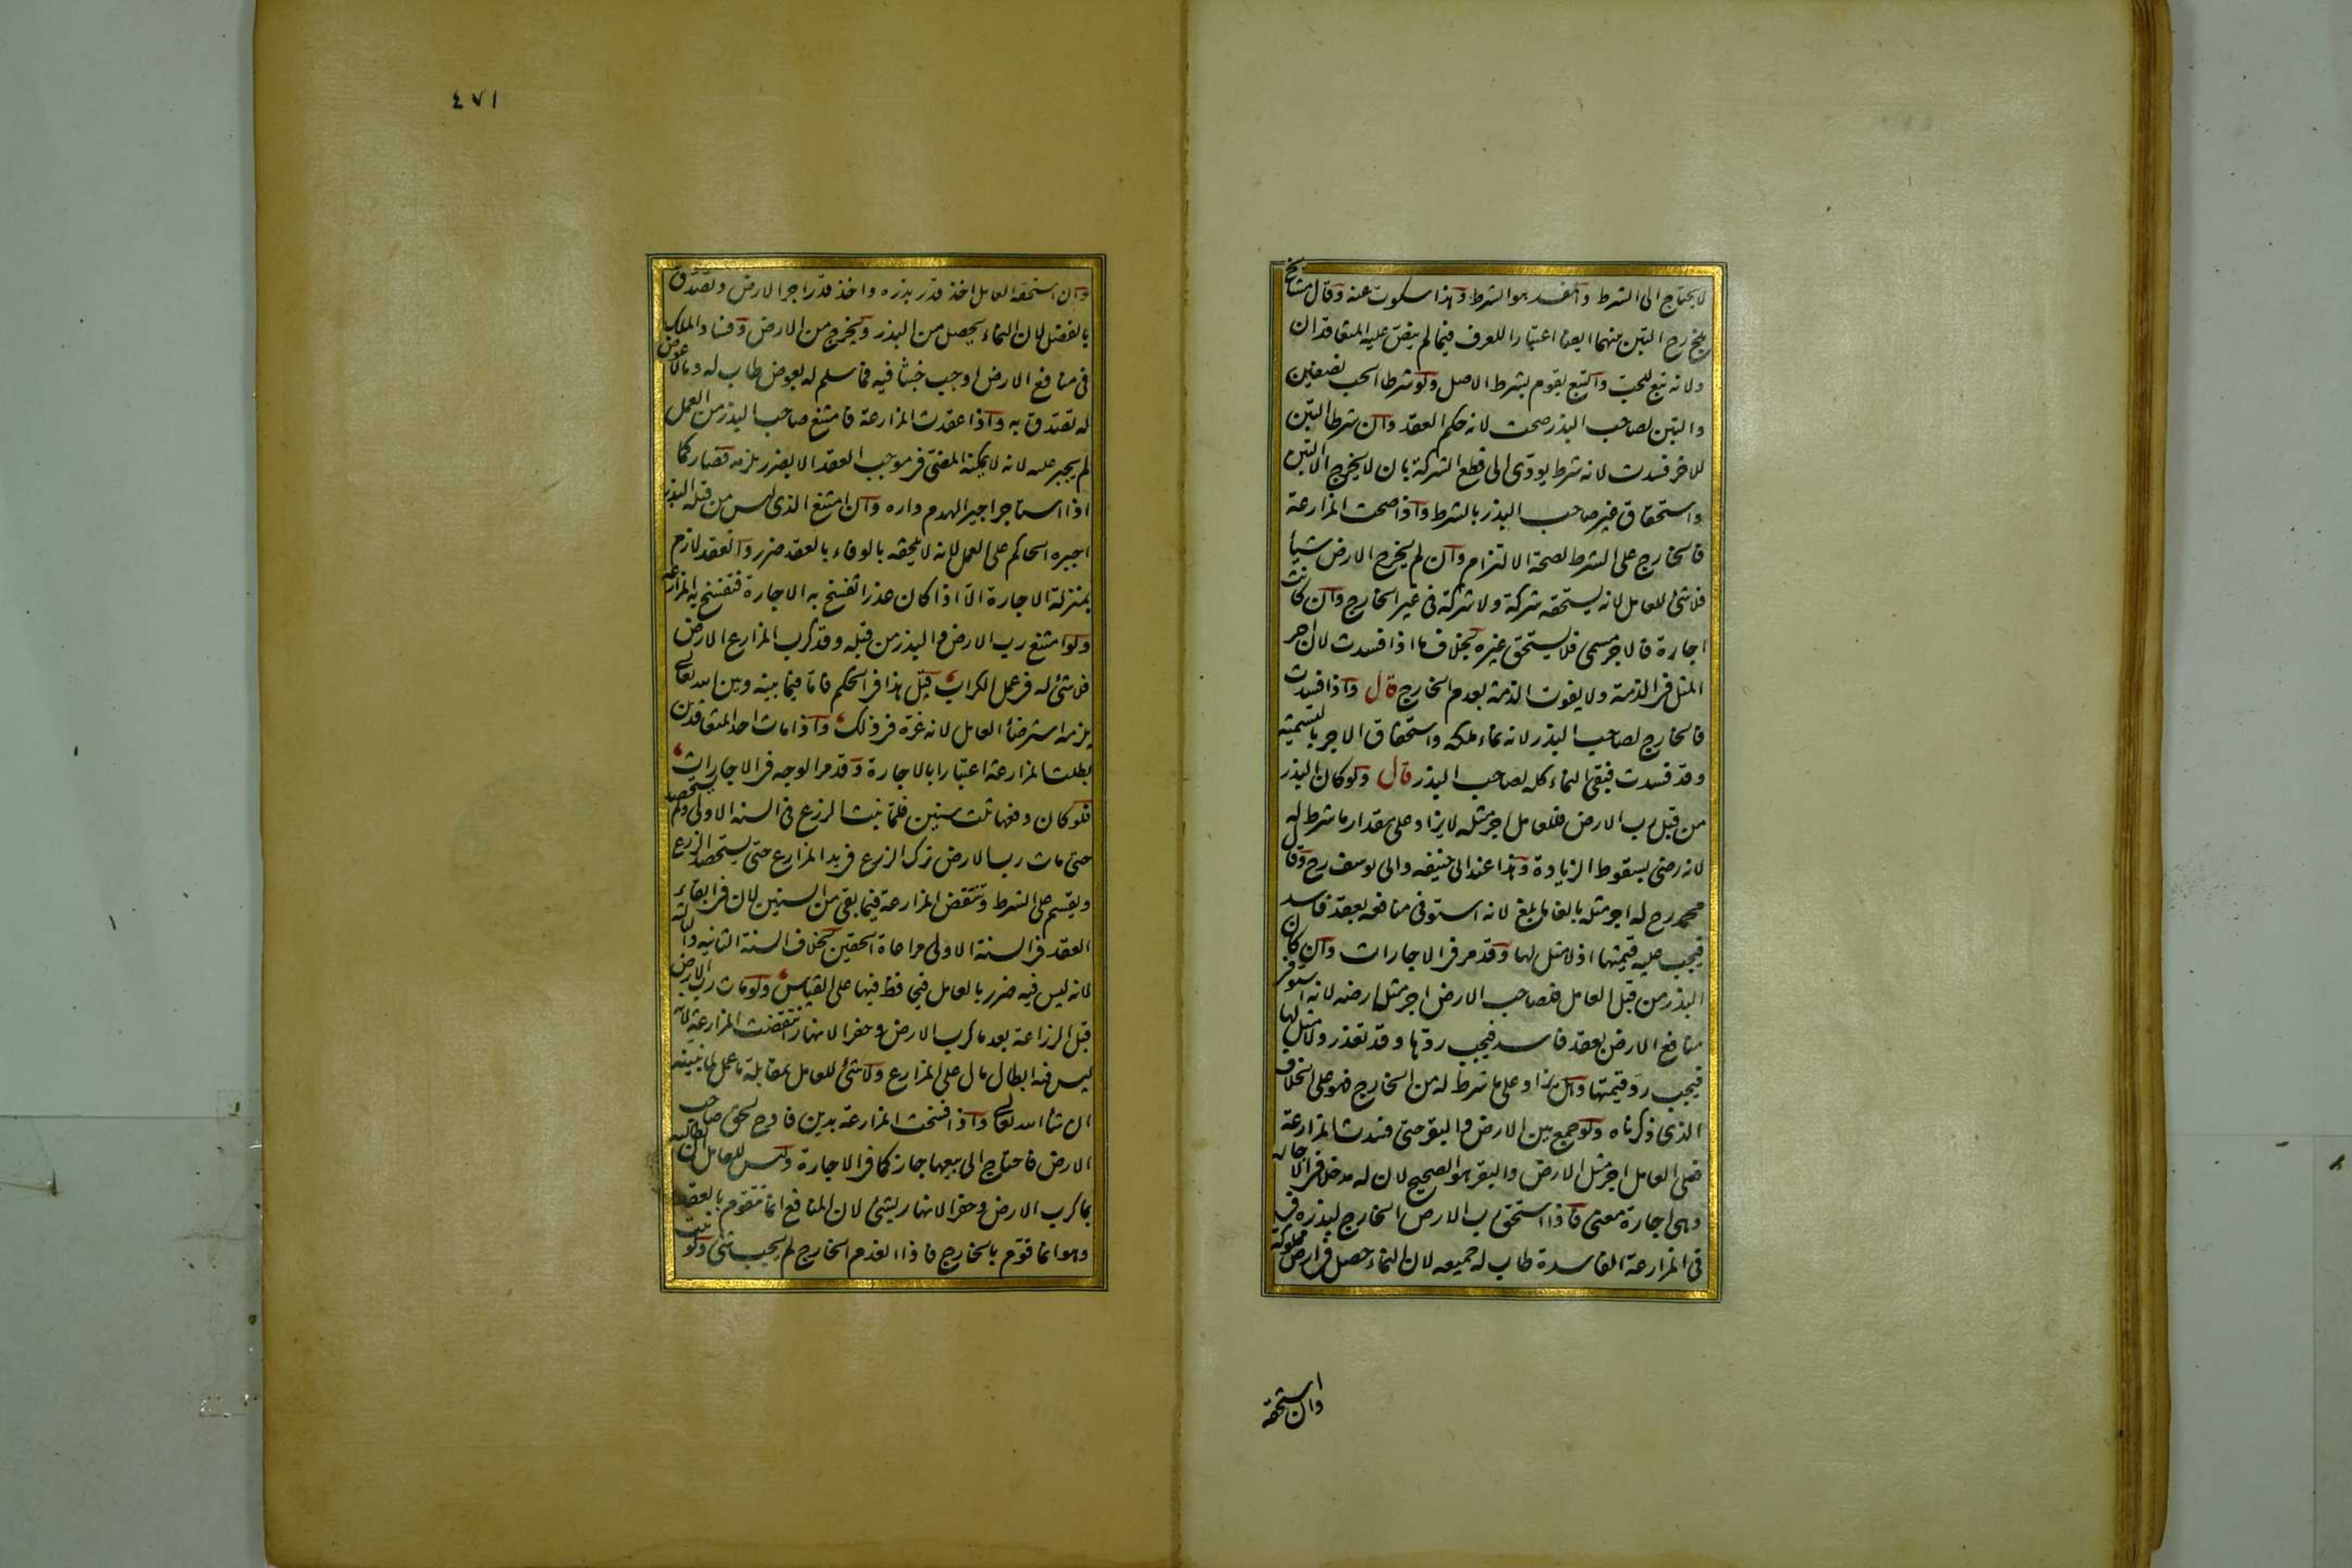 لا يحتاج الى الشرط والمفسد هو الشرط وهذا سكوت عنه وقال مشايخ
بلخ رح التبن بينهما ايضا اعتبارا للعرف فيما لم ينص عليه المتعاقدان
ولانه تبع للحب والتبع يقوم بشرط الاصل ولو شرطا الحب نصفين
والتبن لصاحب البذر صحت لانه حكم العقد وان شرطا التبن
للاخر فسدت لانه شرط يودى الى قطع الشركة بان لا يخرج الا التبن
واستحقاق غير صاحب البذر بالشرط واذا صحت المزارعة
فالخارج على الشرط لصحة الالتزام وان لم يخرج الارض شيأ
فلا شئ للعامل لانه يستحقه شركة ولا شركة فى غير الخارج وان كانت
اجارة فالاجر مسمى فلا يستحق غيره بخلاف ما اذا فسدت لان اجر
المثل فى الذمة ولا يفوت الذمة بعدم الخارج قال واذا فسدت
فالخارج لصاحب البذر لانه نماء ملكه واستحقاق الاجر بالتسمية
وقد فسدت فبقى النماء كله لصاحب البذر قال ولو كان البذر
من قبل رب الارض فللعامل اجر مثله لا يزاد على مقدار ما شرط له
لانه رضى بسقوط الزيادة وهذا عند ابى حنيفه وابى يوسف رح وقال
محمد رح له اجر مثله بالغا ما بلغ لانه استوفى منافعه بعقد فاسد
فيجب عليه قيمتها اذ لا مثل لها وقد مر فى الاجارات وان كان
البذر من قبل العامل فلصاحب الارض اجر مثل ارضه لانه استوفى
منافع الارض بعقد فاسد فيجب ردها وقد تعذر ولا مثل لها
فيجب رد قيمتها وهل يزاد على ما شرط له من الخارج فهو على الخلاف
الذى ذكرناه ولو جمع بين الارض والبقر حتى فسدت المزارعة
فعلى العامل اجر مثل الارض والبقر هو الصحيح لان له مدخلا فى الاجاره
وهى اجارة معنى فاذا استحق رب الارض الخارج لبذره فى
فى المزارعة الفاسدة طاب له جميعه لان النماء حصل فى ارض مملوكة
وان استحقه
٤٧١
وان استحقه العامل اخذ قدر بذره واخذ قدر اجر الارض وتصدق
بالفضل لان النماء يحصل من البذر ويخرج من الارض وفساد الملك
فى منافع الارض اوجب خبثا فيه فما سلم له بعوض طاب له وما لا عوض
له تصدق به واذا عقدت المزارعة فامتنع صاحب البذر من العمل
لم يجبر عليه لانه لا يمكنه المضى فى موجب العقد الا بضرر يلزمه فصار كما
اذا استاجر اجيرا ليهدم داره وان امتنع الذى ليس من قبله البذر
اجبره الحاكم على العمل لانه لا يلحقه بالوفاء بالعقد ضرر والعقد لازم
بمنزلة الاجارة الا اذا كان عذرا تفسخ به الاجارة فتفسخ به المزارعه
ولو امتنع رب الارض والبذر من قبله وقد كرب المزارع الارض
فلا شئ له فى عمل الكراب قيل هذا فى الحكم فاما فيما بينه وبين الله تعالى
يلزمه استرضاء العامل لانه غره فى ذلك واذا مات احد المتعاقدين
بطلت المزارعة اعتبارا بالاجارة وقد مر الوجه فى الاجارات
فلو كان دفعها ثلث سنين فلما نبت الزرع فى السنه الاولى ولم يستحصد
حتى مات رب الارض ترك الزرع فى يد المزارع حتى يستحصد الزرع
ويقسم على الشرط وتنتقض المزارعة فيما بقى من السنين لان فى ابقاء
العقد فى السنة الاولى مراعاة الحقين بخلاف السنة الثانيه والثالثه
لانه ليس فيه ضرر بالعامل فيحافظ فيها على القياس ولو مات رب الارض
قبل الزراعة بعد ما كرب الارض وحفر الانهار انتقضت المزارعة لانه
ليس فيه ابطال مال على المزارع ولا شئ للعامل بمقابلة ما عمل لما نبينه
ان شاء الله تعالى واذا فسخت المزارعة بدين فادح لحق صاحب
الارض فاحتاج الى بيعها جاز كما فى الاجارة وليس للعامل ان يطالبه
بما كرب الارض وحفر الانهار بشئ لان المنافع انما تتقوم بالعقد
وهو انما قوم بالخارج فاذا انعدم الخارج لم يجب شئ ولو نبت